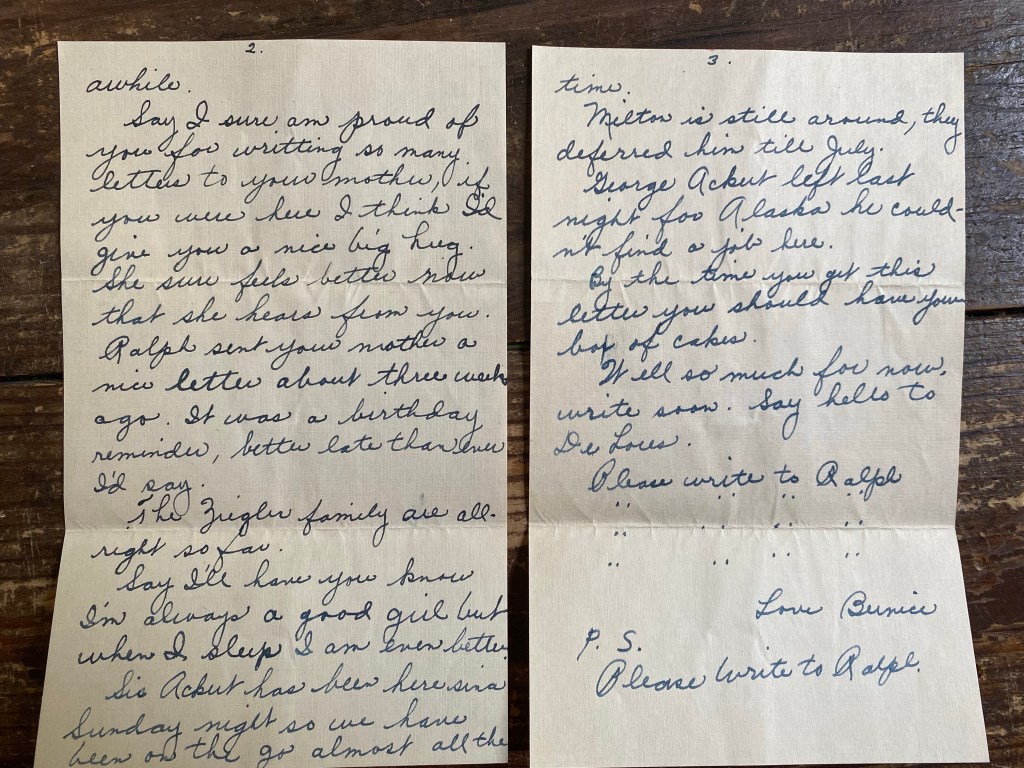 2.
awhile.
Say I sure am proud of
you for writting so many
letters to your mother, if
you were here I think I'd
give you a nice big hug.
She sure feels better now
that she hears from you.
Ralph sent your mother a
nice letter about three weeks
ago. It was a birthday
reminder, better late than ever
I'd say.
The Ziegler family are all-
right so far.
Say I'll have you know
I'm always a good girl but
when I sleep I am even better.
Sis Ackert has been here since
Sunday night so we have
been on the go almost all the
3.
time.
Milton is still around, they
deferred him till July.
George Ackert left last
night for Alaska he could-
n't find a job here.
By the time you get this
letter you should have your
box of cakes.
Well so much for now,
write soon. Say hello to
De Lores.
Please write to Ralph
" " " "
" " " "
Love Bernice
P. S.
Please Write to Ralph.